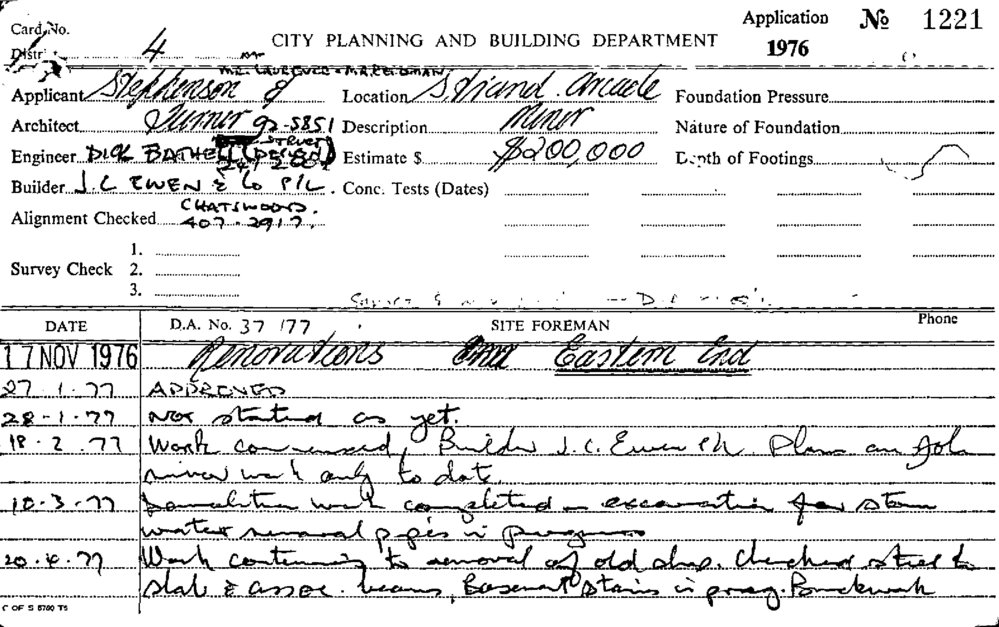 Card No. Application No 1221
District 4 CITY PLANNING AND BUILDING DEPARTMENT 1976
MR. LAURENCE - MR. FELDMAN
Applicant Stephenson & Location Strand Arcade Foundation Pressure
Architect Turner 92-5851 Description Minor Nature of Foundation
Engineer DICK BATHE (DESIGN) Estimate $ $200,000 Depth of Footings
Builder J.C EWEN & Co P/L. Conc. Tests (Dates)
CHATSWOOD.
Alignment Checked 407-2917.
1.
Survey Check 2.
3.
DATE D.A. No. 37 /77 SITE FOREMAN Phone
17 NOV 1976 Renovations Eastern End
27-1-77 APPROVED
28-1-77 Not started as yet.
18-2-77 Work commenced, Builder J.C. Ewen P/L. Plans on Job
minor work only to date.
10-3-77 Demolition work completed - excavation for storm
water removal pipes in progress
20.4.77 Work continuing to removal of old shop. Checked steel to
slab & assoc. beams, Basement Stairs in prog. Brickwork
C OF S 5760 T5